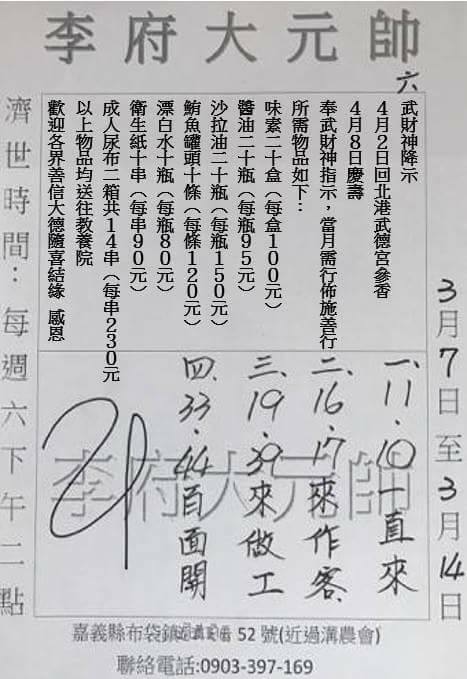 李府大元帥
六
武財神降示
4月2日回北港武德宮參香
4月8日慶壽
奉武財神指示，當月需行佈施善行
所需物品如下：
味素二十盒（每盒100元）
醬油二十瓶（每瓶95元）
沙拉油二十瓶（每瓶150元）
鮪魚罐頭十條（每條120元）
漂白水十瓶（每瓶80元）
衛生紙十串（每串90元）
成人尿布二箱共14串（每串230元
以上物品均送往教養院
歡迎各界善信大德隨喜結緣 感恩
3月7日至3月14日
一、11.10一直來
二、16.17來作客
三、19.39來做工
四、33.44百面開
李府大元帥
濟世時間：每週六下午二點
嘉義縣布袋鎮 52號(近過溝農會)
聯絡電話:0903-397-169